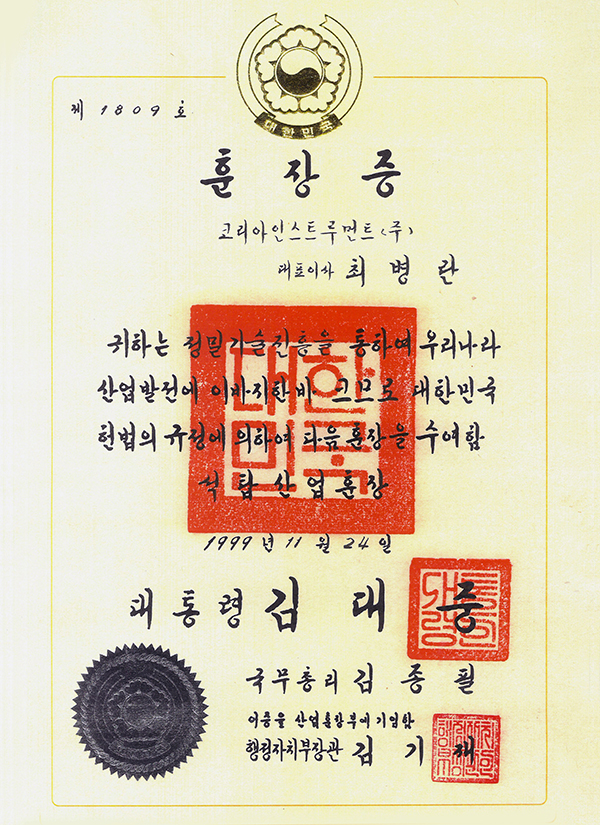 대한민국
제 1809 호
훈장증
코리아인스트루먼트(주)
대표이사 최병란
귀하는 정밀기술진흥을 통하여 우리나라
산업발전에 이바지한바 크므로 대한민국
헌법의 규정에 의하여 다음 훈장을 수여함
석탑산업훈장
대한민국
1999년 11월 24일
대통령 김대중
국무총리 김종필
이증을 산업훈장부에 기입함
행정자치부장관 김기재